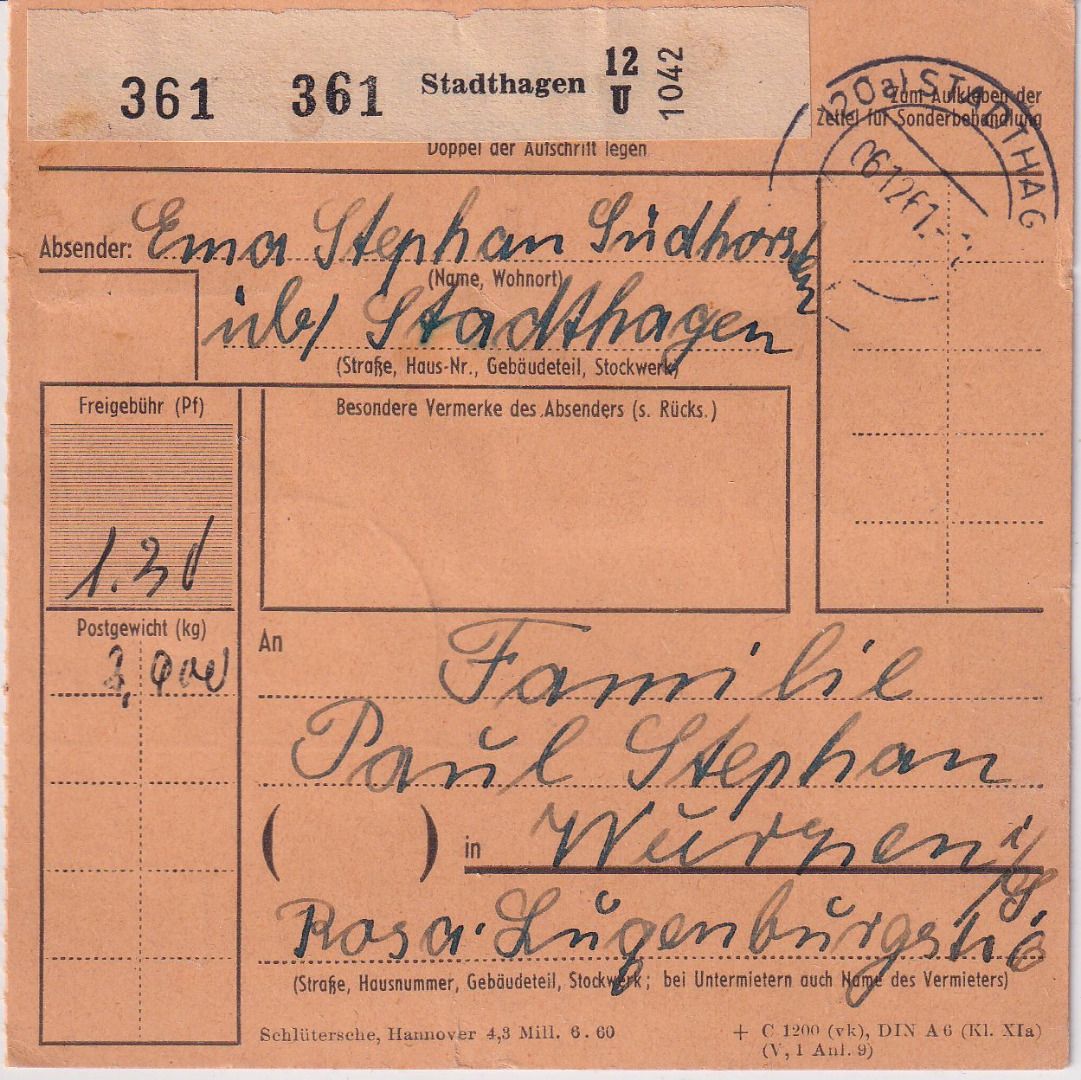 361 361 Stadthagen 12 U 1042
(20a) STADTHAG
06.12.61.-
Zum Aufkleben der
Zettel für Sonderbehandlung
Doppel der Aufschrift legen
Absender: Erna Stephan Südhorsten
(Name, Wohnort)
üb/ Stadthagen
(Straße, Haus-Nr., Gebäudeteil, Stockwerk)
Freigebühr (Pf)
Besondere Vermerke des Absenders (s. Rücks.)
Postgewicht (kg)
An Familie
Paul Stephan
( ) in Wurzen i/S.
Rosa-Luxenburgstr.
(Straße, Hausnummer, Gebäudeteil, Stockwerk; bei Untermietern auch Name des Vermieters)
Schlütersche, Hannover 4,3 Mill. 6. 60
+ C 1200 (vk), DIN A 6 (Kl. XIa)
(V, 1 Anl. 9)